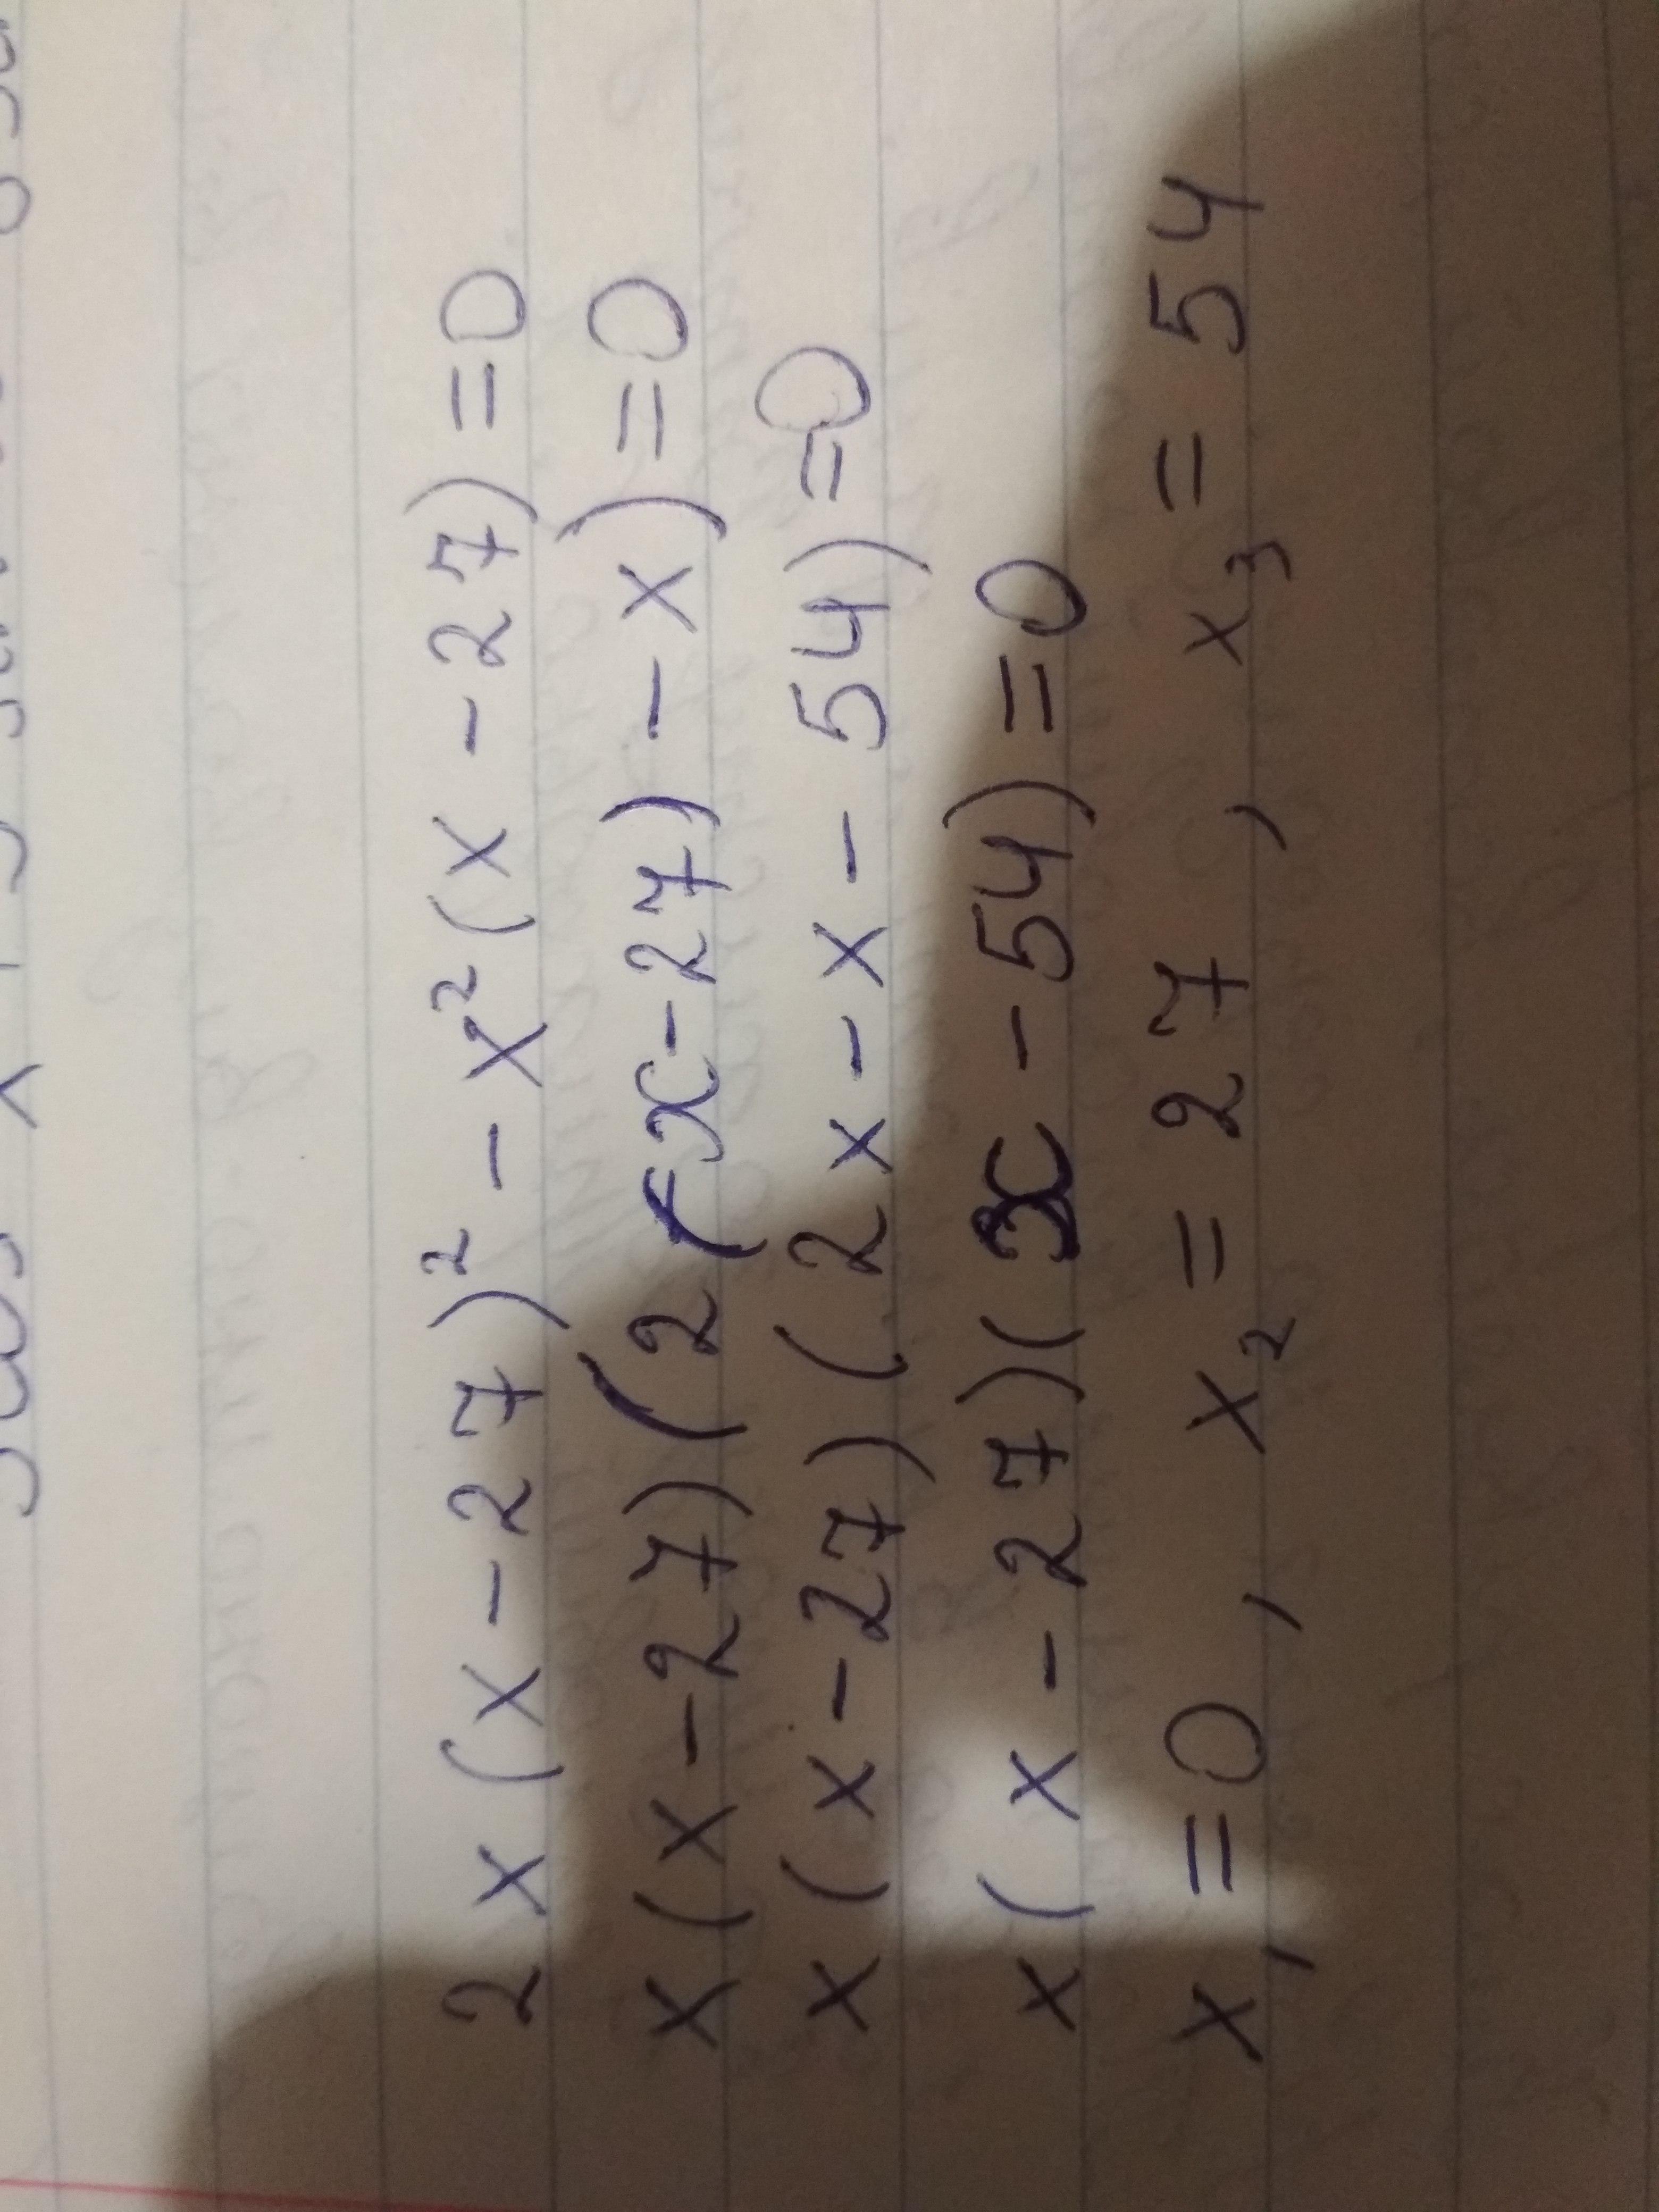 2x(x-27)² - x²(x-27)=0
x(x-27)(2(x-27)-x)=0
x(x-27)(2x-x-54)=0
x(x-27)(x-54)=0
x₁=0, x₂=27, x₃=54